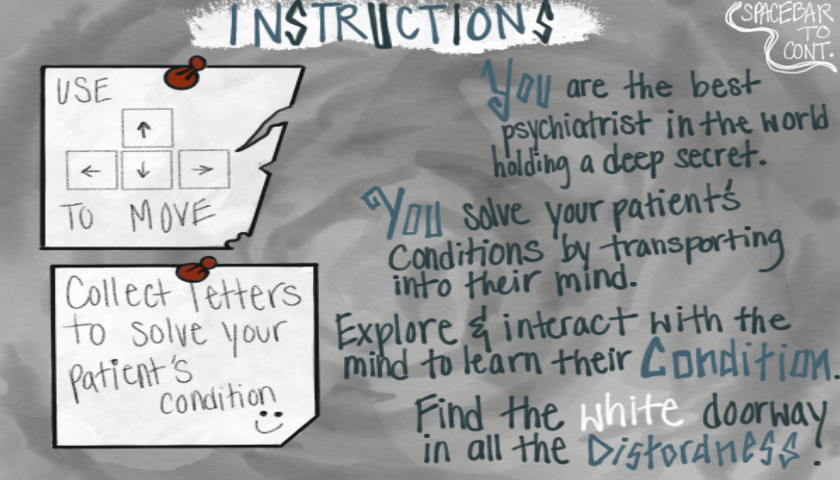 INSTRUCTIONS
SPACEBAR
TO
CONT.
USE
↑
← ↓ →
TO MOVE
Collect letters
to solve your
patient's
condition
You are the best
psychiatrist in the world
holding a deep secret.
You solve your patient's
Conditions by transporting
into their mind.
Explore & interact with the
mind to learn their Condition.
Find the white doorway
in all the Distordness.